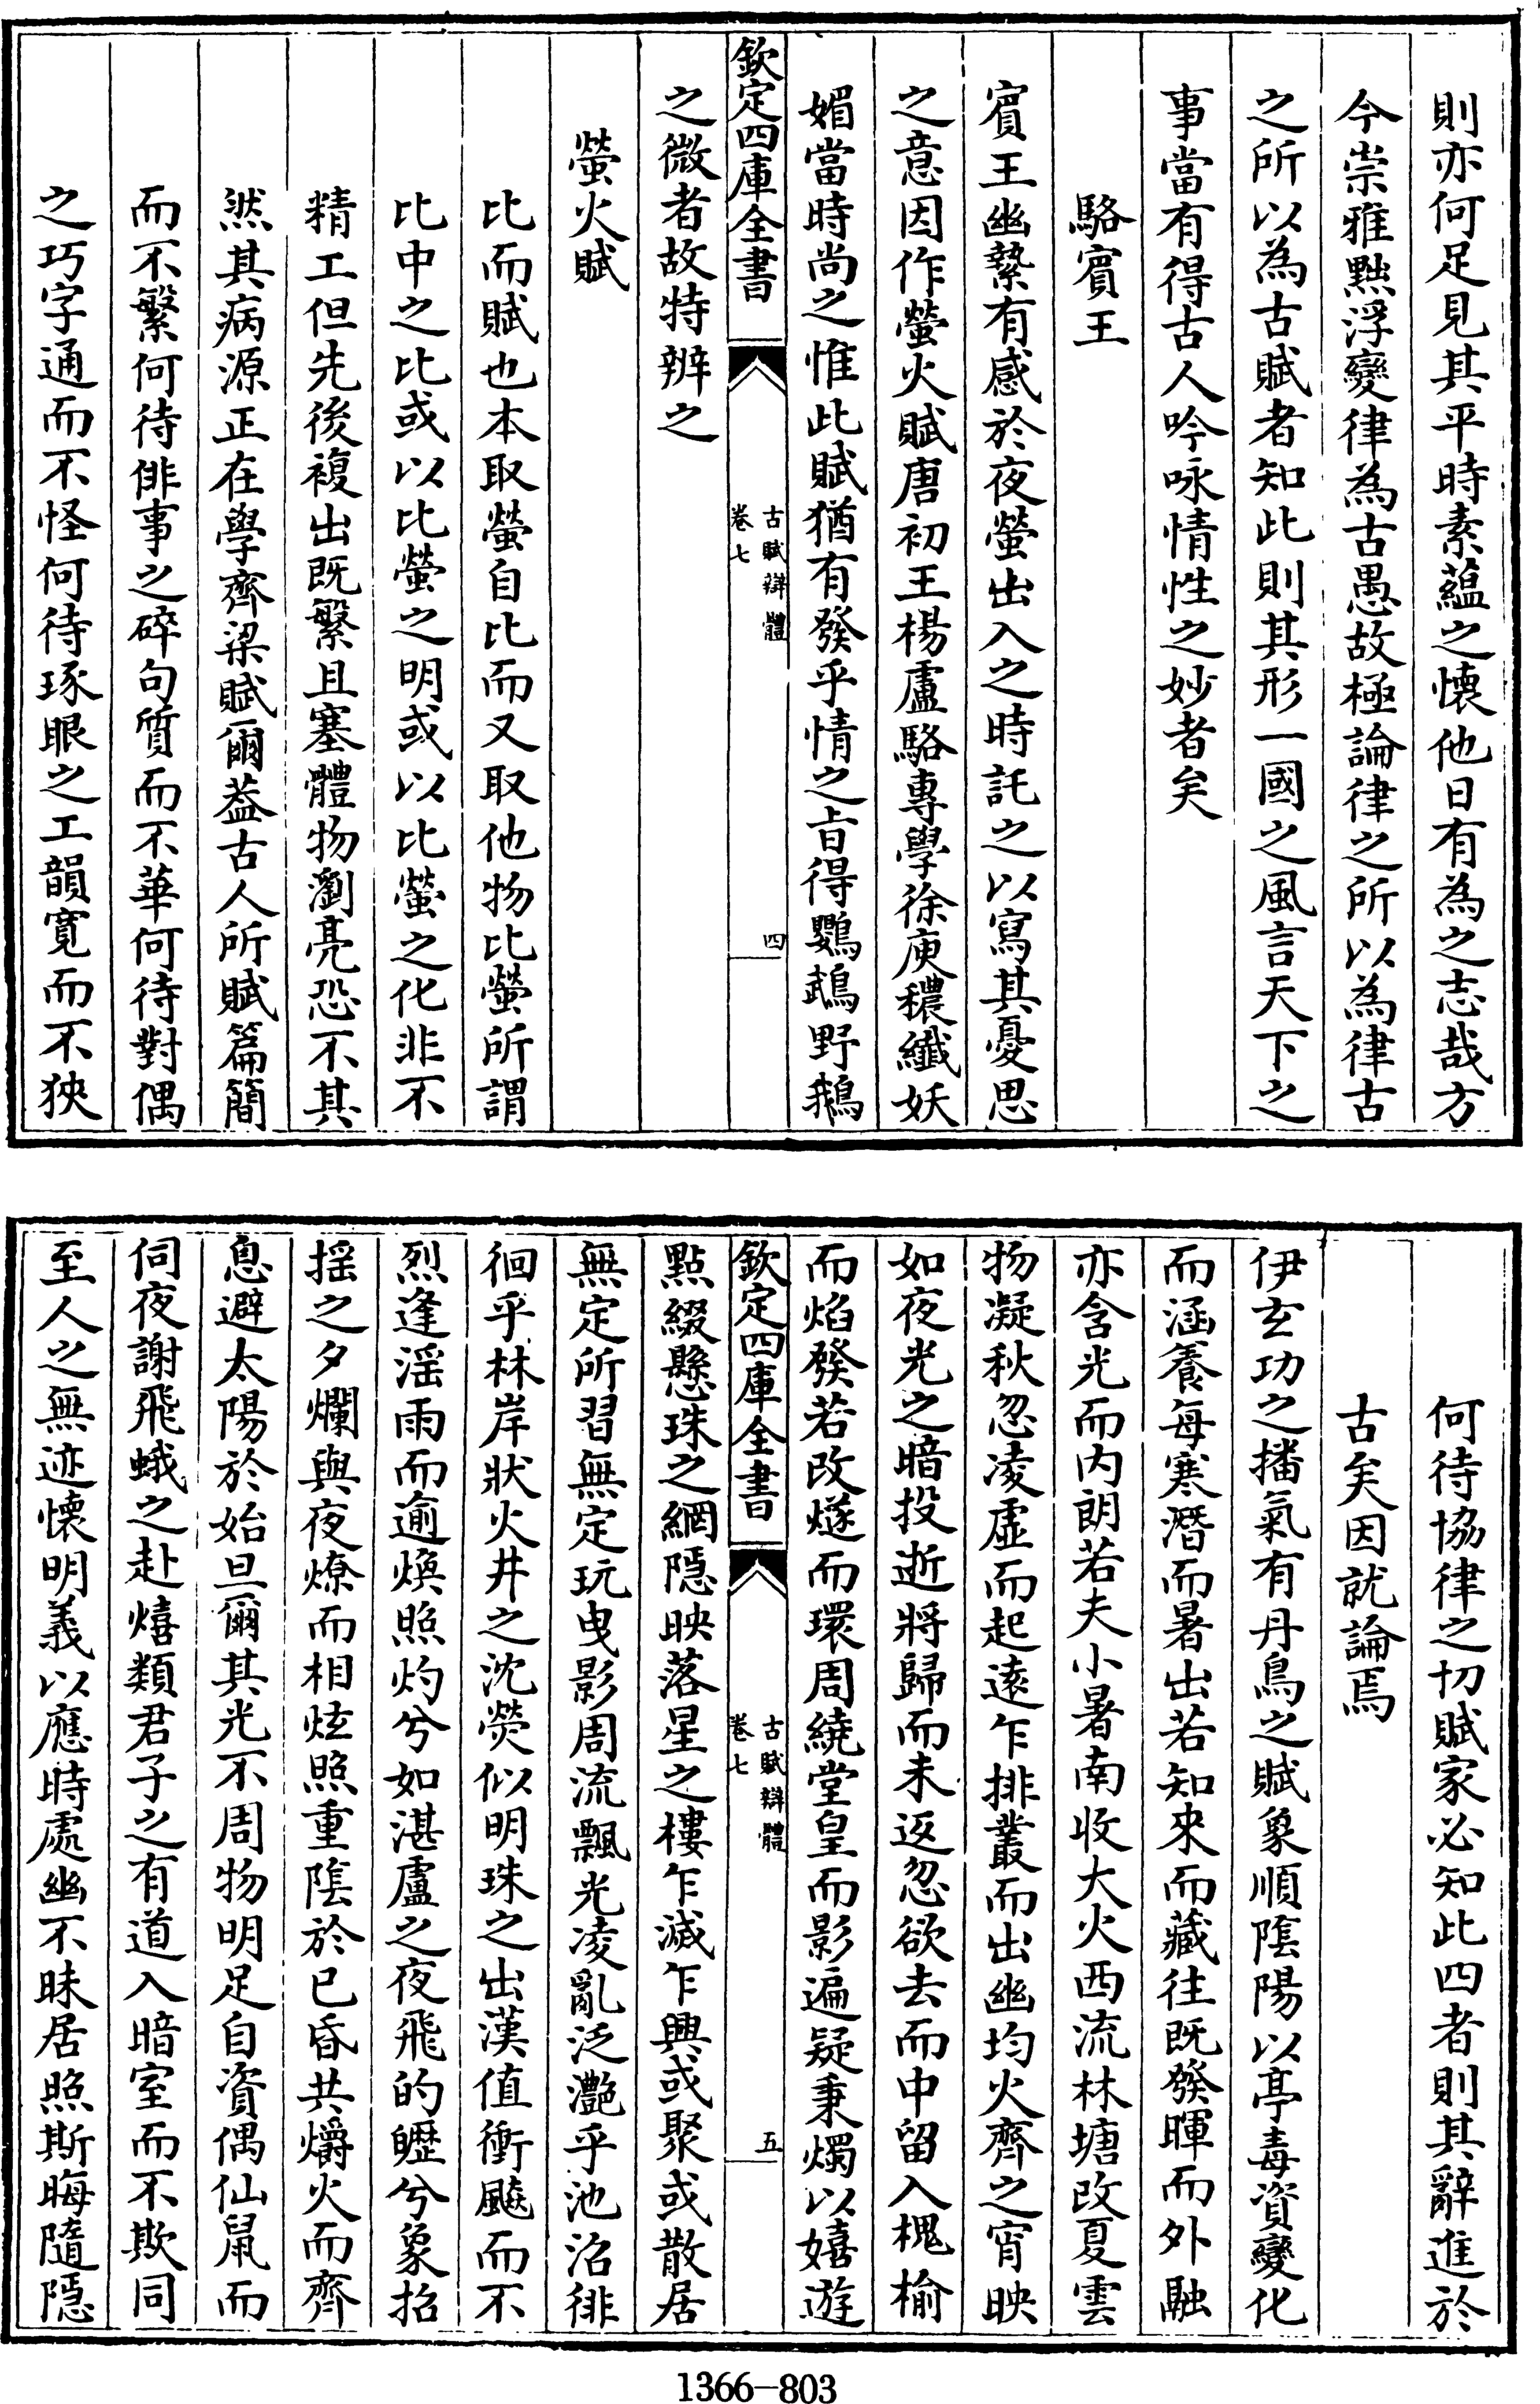 則亦何足見其平時素蘊之懐他日有為之志哉方
今崇雅黜浮變律為古愚故極論律之所以為律古
之所以為古賦者知此則其形一國之風言天下之
事當有得古人吟咏情性之妙者矣
駱賓王
賓王幽縶有感於夜螢出入之時託之以寫其憂思
之意因作螢火賦唐初王楊盧駱專學徐庾穠纖妖
媚當時尚之惟此賦猶有發乎情之旨得鸚鵡野鵝
欽定四庫全書
古賦辯體
卷七
四
之微者故特辨之
螢火賦
比而賦也本取螢自比而又取他物比螢所謂
比中之比或以比螢之明或以比螢之化非不
精工但先後複出既繁且塞體物瀏亮恐不其
然其病源正在學齊梁賦爾葢古人所賦篇簡
而不繁何待俳事之碎句質而不華何待對偶
之巧字通而不怪何待琢眼之工韻寛而不狹
何待協律之切賦家必知此四者則其辭進於
古矣因就論焉
伊玄功之播氣有丹鳥之賦象順陰陽以亭毒資變化
而涵養每寒潛而暑出若知來而藏往既發暉而外融
亦含光而内朗若夫小暑南收大火西流林塘改夏雲
物凝秋忽凌虚而起遠乍排叢而出幽均火齊之宵映
如夜光之暗投逝將歸而未返忽欲去而中留入槐榆
而焰發若改燧而環周繞堂皇而影遍疑秉燭以嬉遊
欽定四庫全書
古賦辯體
卷七
五
點綴懸珠之網隠映落星之樓乍滅乍興或聚或散居
無定所習無定玩曳影周流飄光凌亂泛灔乎池沼徘
徊乎林岸狀火井之沈熒似明珠之出漢值衝飈而不
烈逢滛雨而逾煥照灼兮如湛盧之夜飛的皪兮象招
揺之夕爛與夜燎而相炫照重隂於已昏共爝火而齊
息避太陽於始旦爾其光不周物明足自資偶仙鼠而
伺夜謝飛蛾之赴熺類君子之有道入暗室而不欺同
至人之無迹懐明義以應時處幽不昧居照斯晦隨隠
1366-803